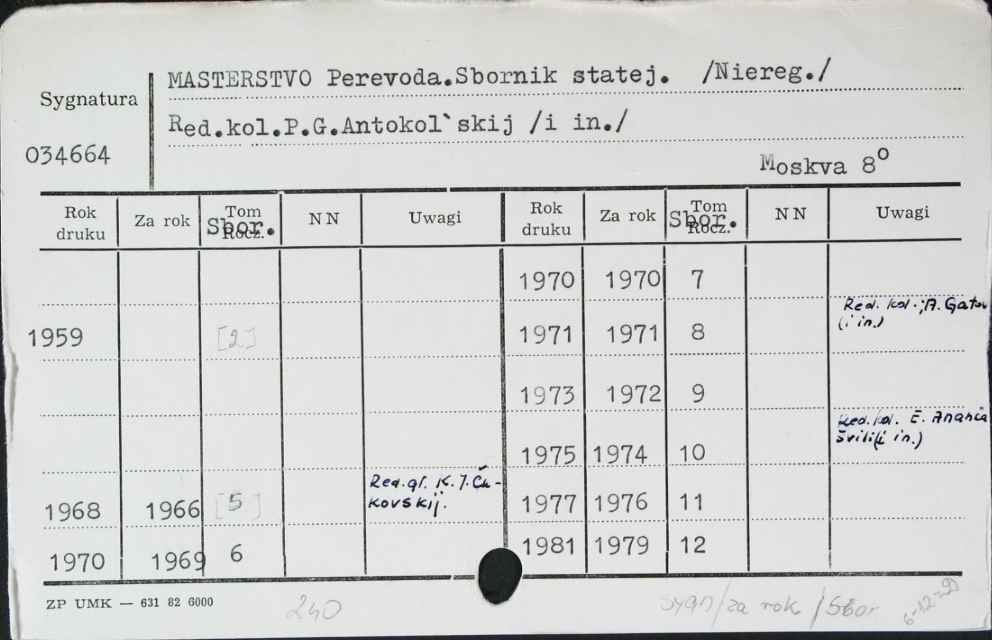 MASTERSTVO Perevoda.Sbornik statej. /Niereg./
Sygnatura
Red.kol.P.G.Antokol`skij /i in./
034664
Moskva 8º
Rok druku Za rok Tom Rocz. Sbor. NN Uwagi Rok druku Za rok Tom Rocz. Sbor. NN Uwagi
1970 1970 7
Red. kol.; A. Gatov
(i in.)
1959 [2] 1971 1971 8
1973 1972 9
Red. kol. E. Anania
švili (i in.)
1975 1974 10
Red. gł. K. I. Ču-
kovskij.
1968 1966 [5] 1977 1976 11
1970 1969 6 1981 1979 12
ZP UMK — 631 82 6000
240
sygn/za rok /Sbor.